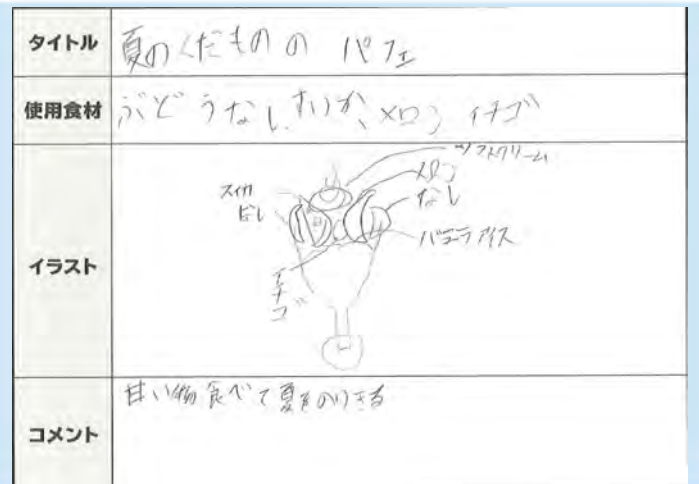 タイトル
夏のくだものの パフェ
使用食材
ぶどうなし、すいか、メロン イチゴ
イラスト
ソフトクリーム
メロン
スイカ
なし
バニラアイス
イチゴ
コメント
甘い物食べて夏をのりきる